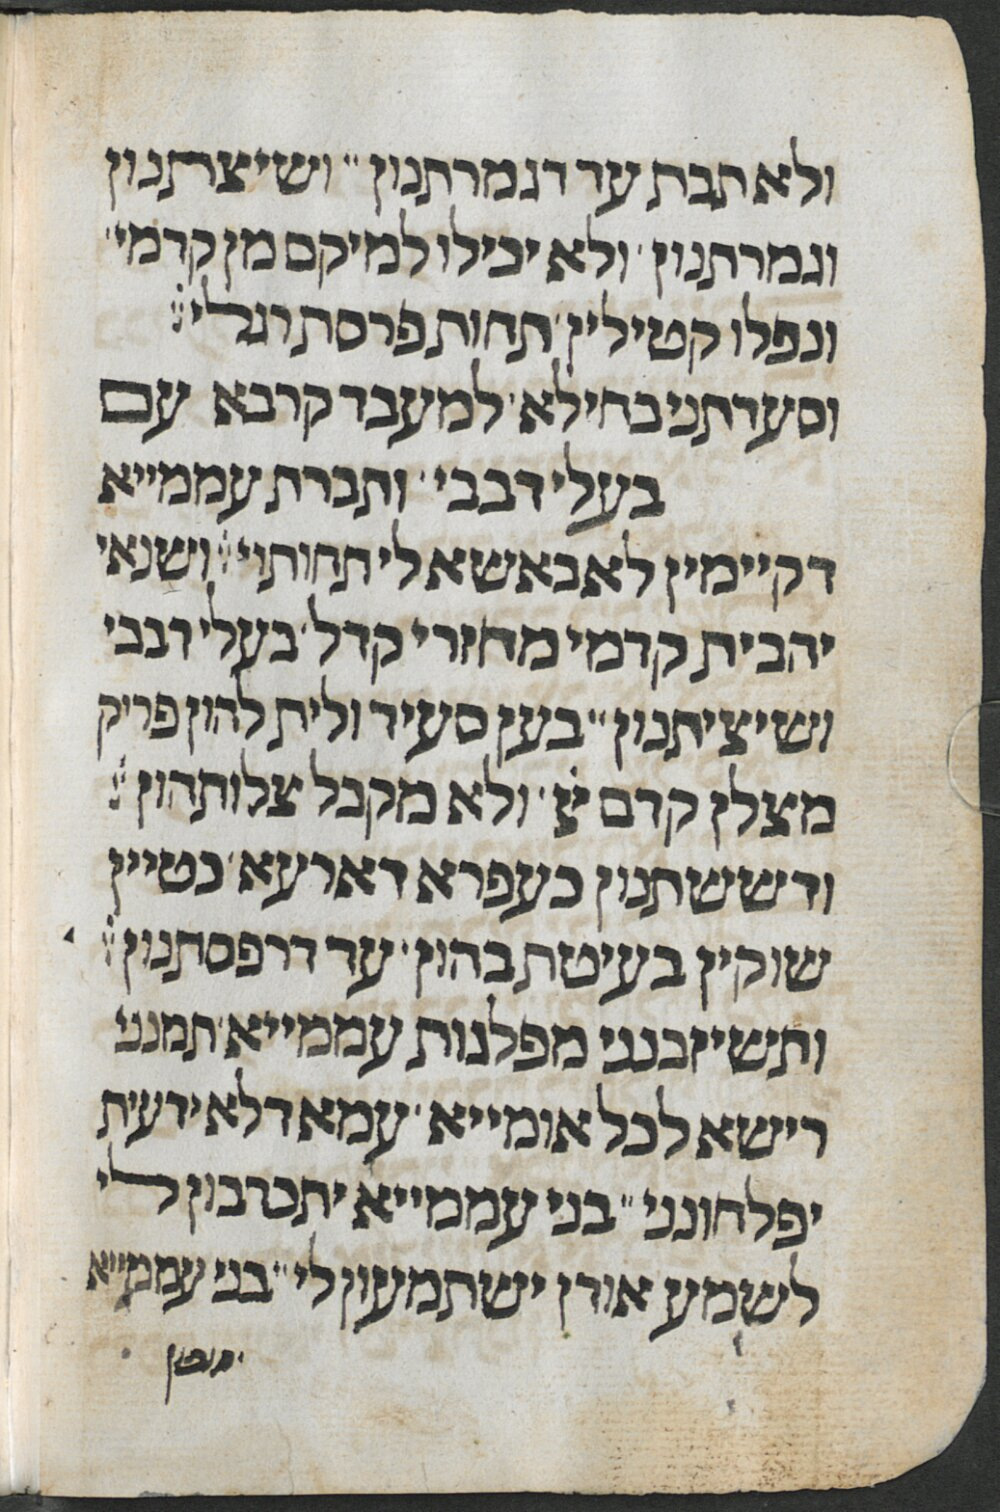 ולא תבת עד דגמרתנון" ושיצתנון
וגמרתנון' ולא יכילו למיקם מן קדמי'
ונפלו קטילין' תחות פרסת רגלי:
וסעדתני בחילא' למעבד קרבא עם
בעלי דבבי' ותברת עממייא
דקיימין לאבאשא לי תחותי: ושנאי
יהבית קדמי מחזרי קדל' בעלי דבבי
ושיציתנון" בען סעיד ולית להון פריק
מצלן קדם ייי' ולא מקבל צלותהון:
ודששתנון כעפרא דארעא' כטיין
שוקין בעיטת בהון' עד דרפסתנון:
ותשיזבנני מפלגות עממייא' תמנני
רישא לכל אומייא' עמא דלא ידעית
יפלחונני" בני עממייא יתכדבון לי
לשמע אודן ישתמעון לי" בני עממייא